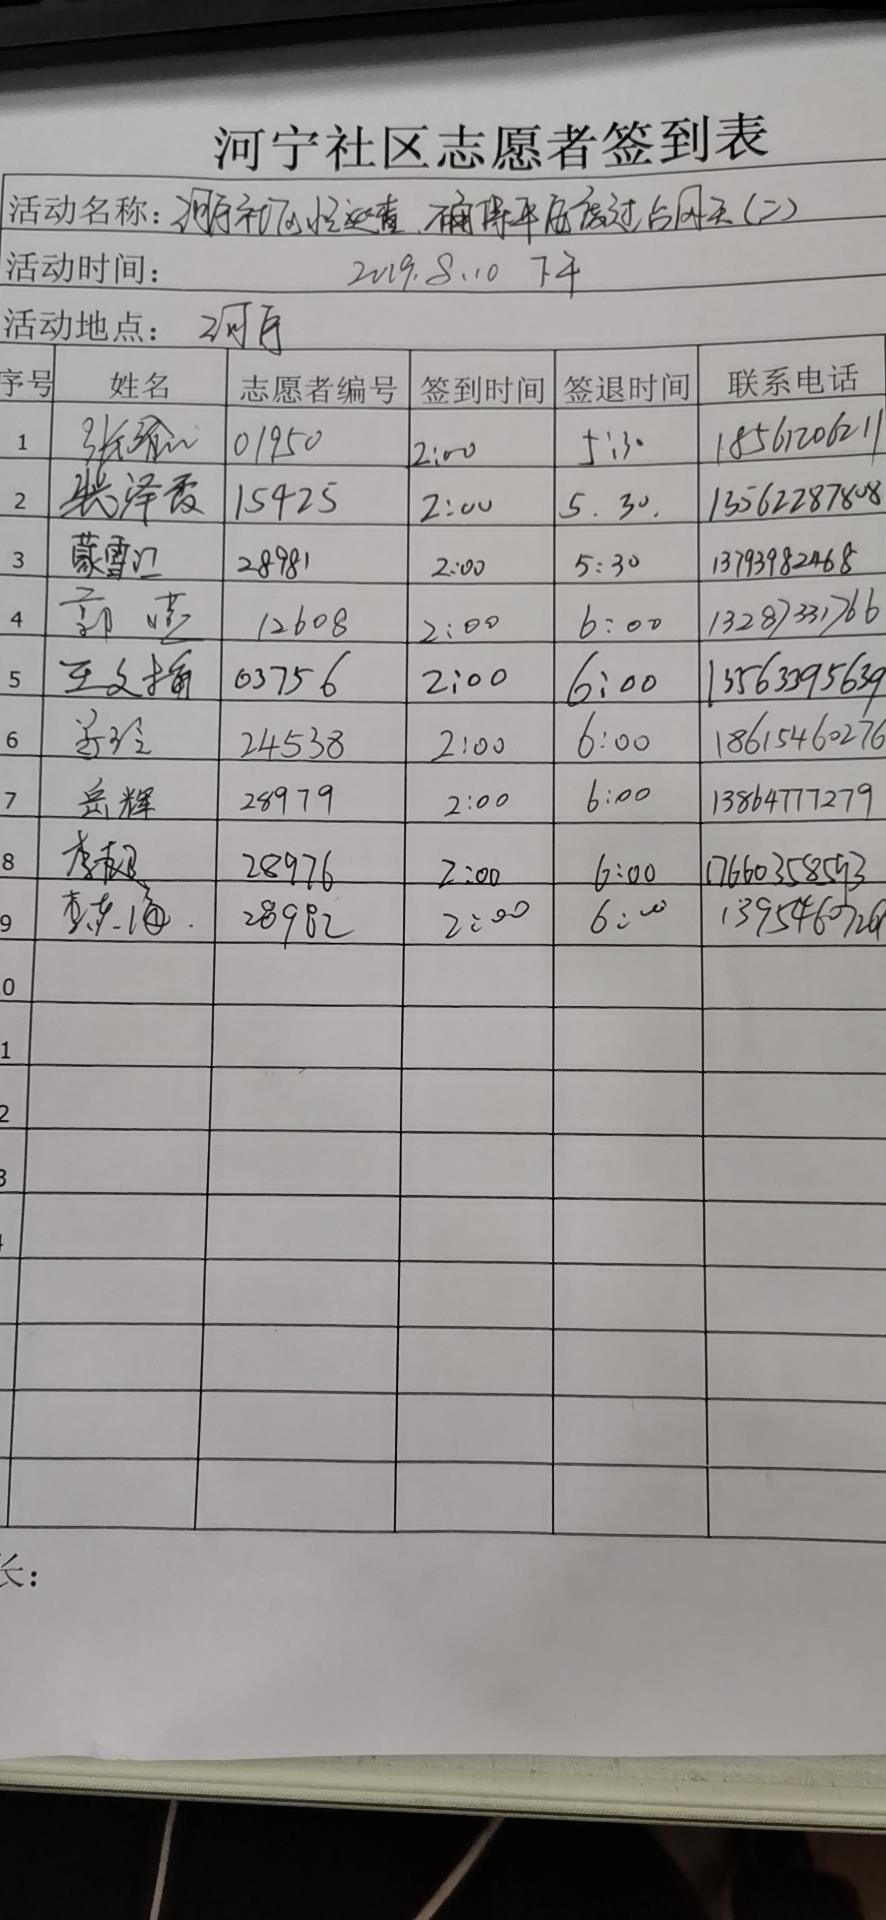 河宁社区志愿者签到表
活动名称：河宁社区 巡查、确保平安度过台风天(二)
活动时间： 2019.8.10 下午
活动地点： 河宁
序号 姓名 志愿者编号 签到时间 签退时间 联系电话
1 01950 2:00 5:30 18561206211
2 张泽霞 15425 2:00 5.30. 13562287808
3 蒙雪江 28981 2:00 5:30 13793982468
4 郭 12608 2:00 6:00 13287331766
5 王文 03756 2:00 6:00 13563395639
6 24538 2:00 6:00 18615460276
7 岳辉 28979 2:00 6:00 13864777279
8 28976 2:00 6:00 17660358593
9 李东海 28982 2:00 6:00
0
1
2
3
长：